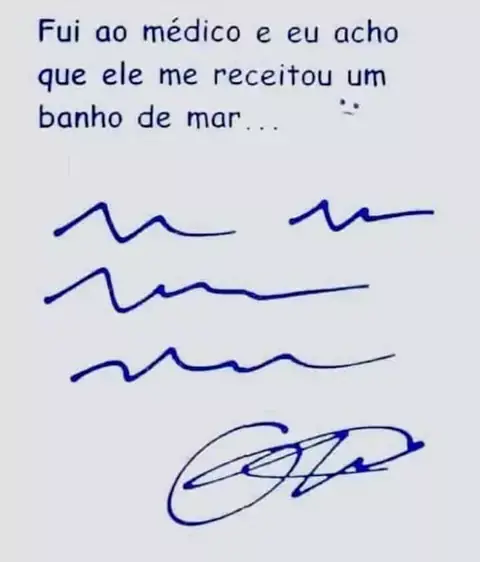 Fui ao médico e eu acho
que ele me receitou um
banho de mar...